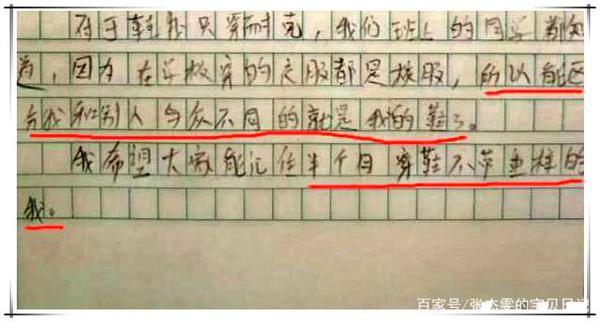 对于鞋我只穿耐克，我们班上的同学都知
道，因为在学校穿的衣服都是校服，所以能区
分我和别人与众不同的就是我的鞋了。
我希望大家能记住半个月穿鞋不带重样的
我。
百家号/张杰雯的宝贝日记